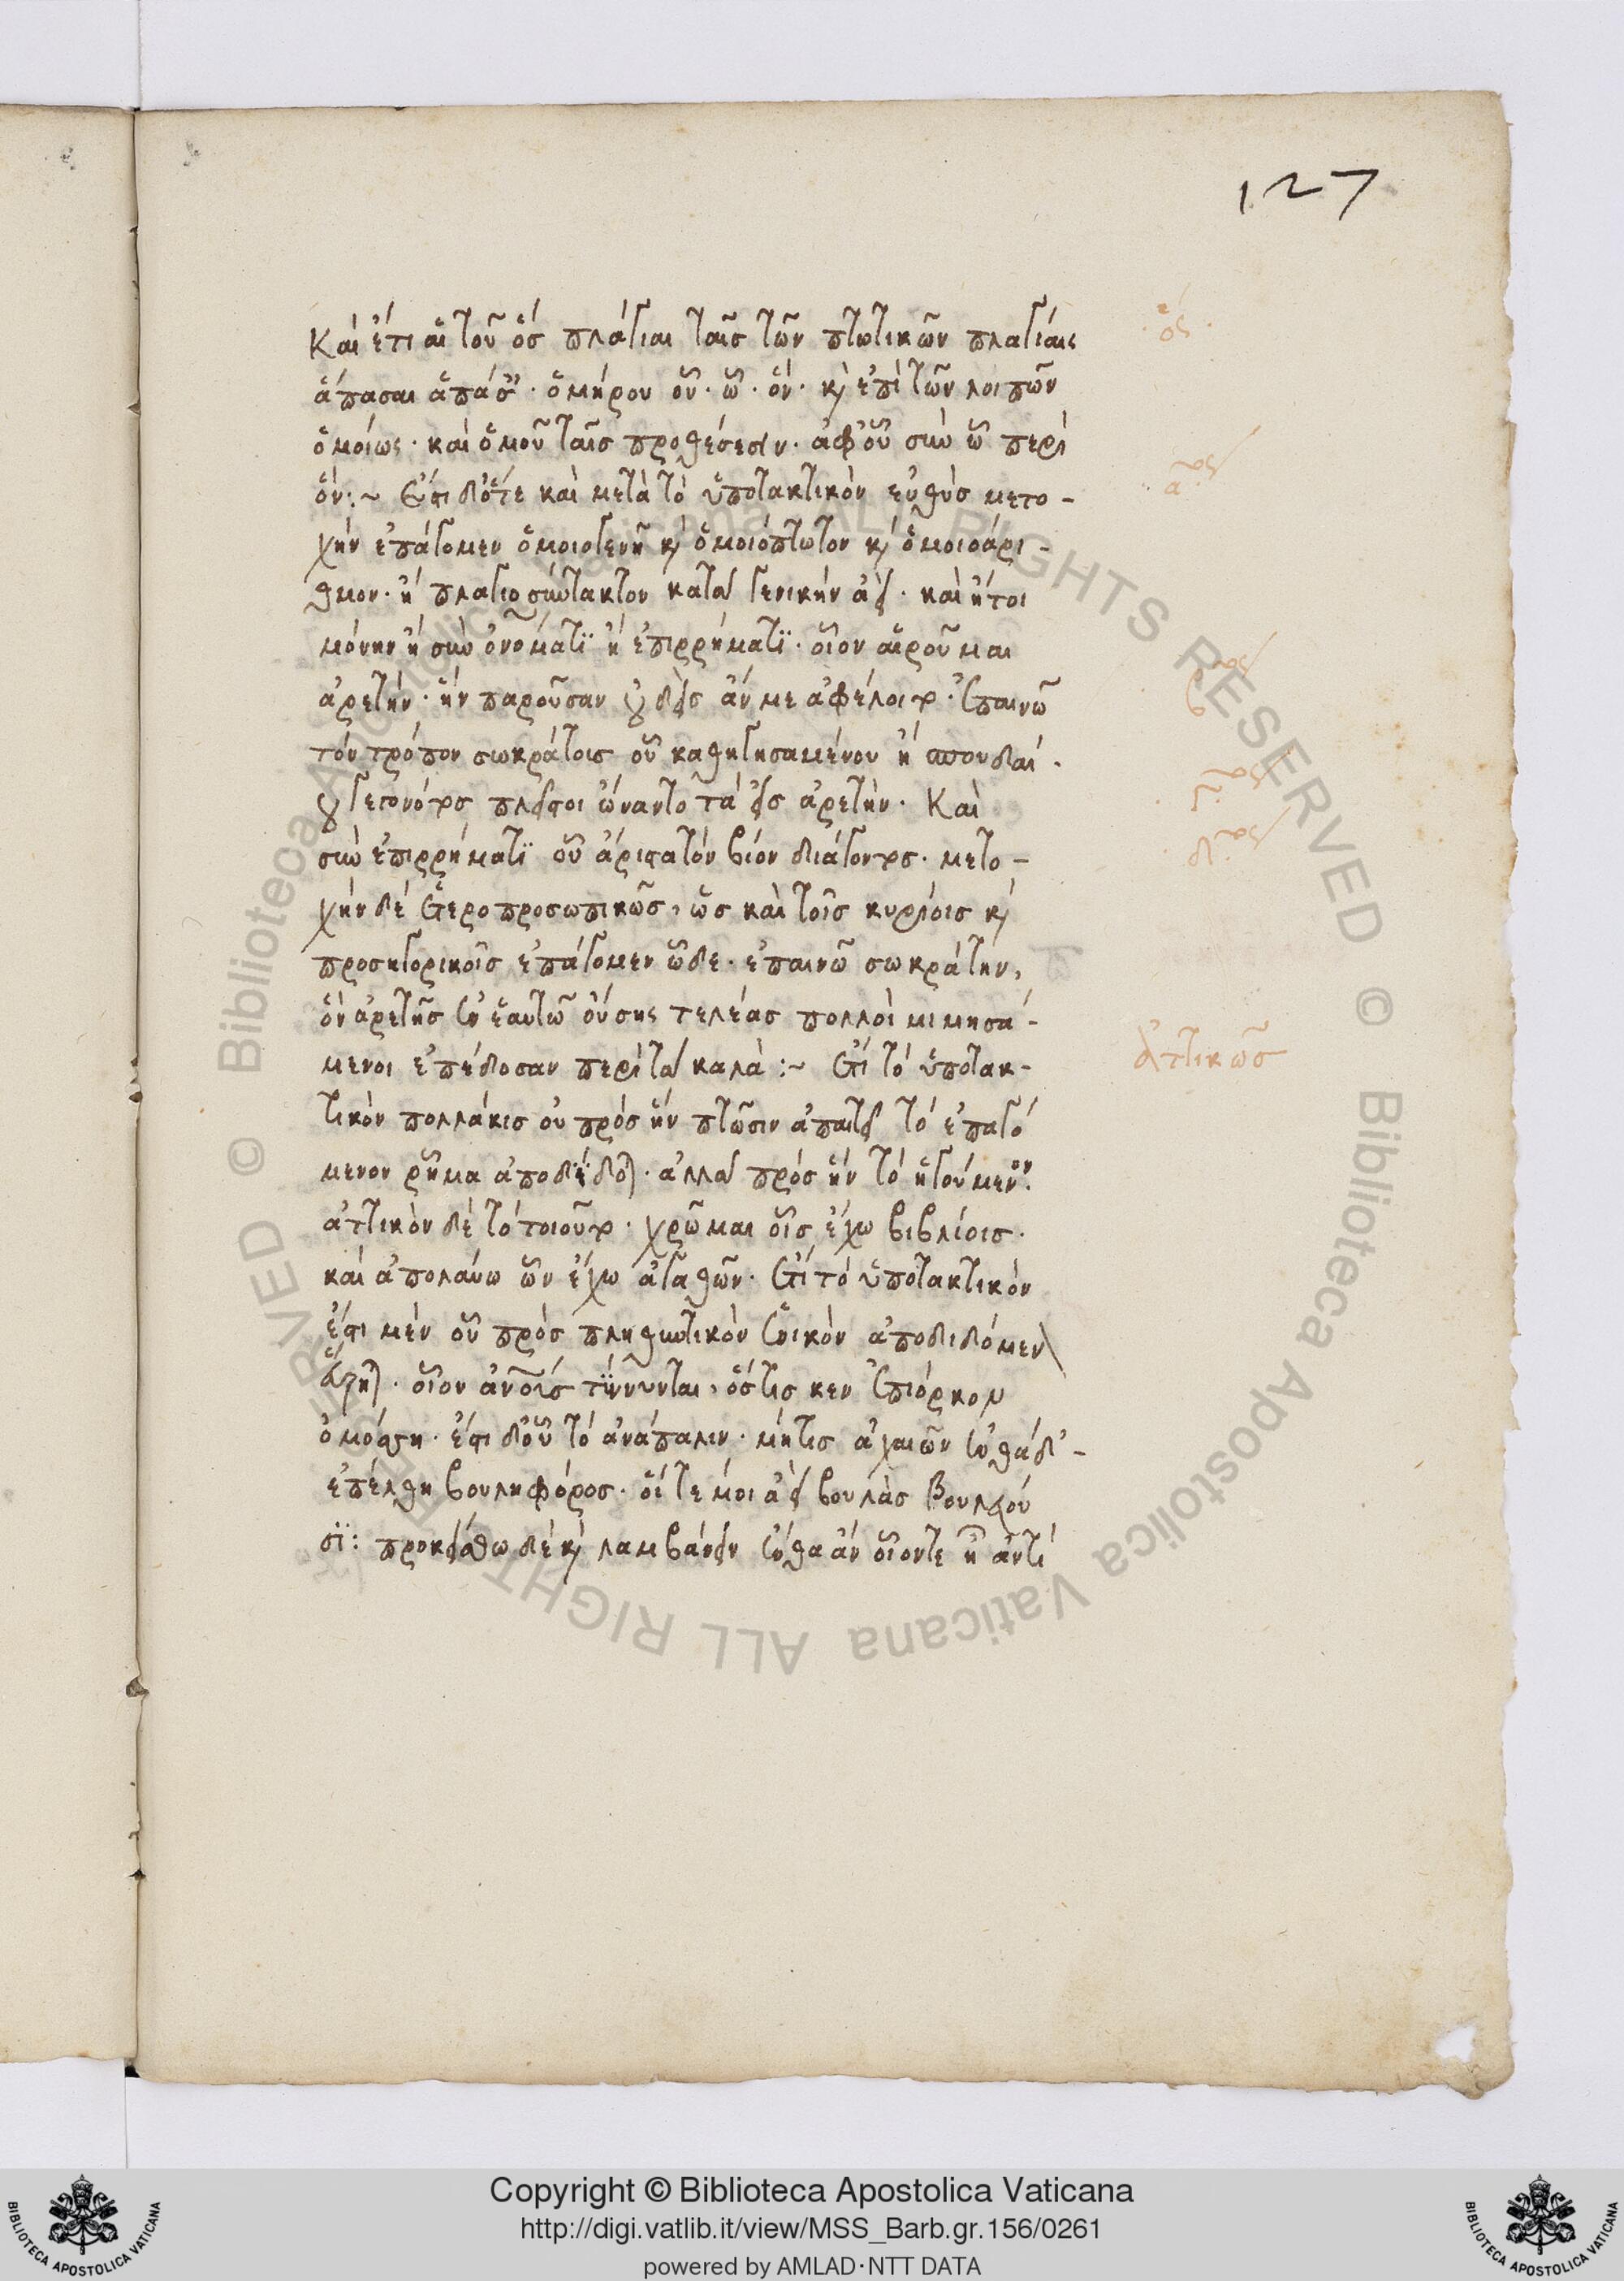 127
Καὶ ἔτι αἱ τοῦ ὅσ πλάγιαι ταῖσ τῶν πτωτικῶν πλαγίαις
ἅπασαι ἁπάσαις· ὁμήρου οὗ· ᾧ· ὅν· κὶ ἐπὶ τῶν λοιπῶν
ὁμοίως· καὶ ὁμοῦ ταῖσ προθέσεσιν· ἀφ' οὗ σὺν ᾧ περὶ
ὅν:~ Ἔστι δ' ὅτε καὶ μετὰ τὸ ὑποτακτικὸν εὐθὺσ μετο-
χὴν ἐπάγομεν ὁμοιογενῆ κὶ ὁμοιόπτωτον κὶ ὁμοιοάρι-
θμον· ἢ πλαγιοσύντακτον κατὰ γενικὴν ἀεὶ· καὶ ἤτοι
μόνην ἢ σὺν ὀνόματϊ ἢ ἐπιρρήματϊ· οἷον αἱροῦμαι
ἀρετὴν· ἣν παροῦσαν οὐδεὶσ ἄν με ἀφέλοιτο· ἐπαινῶ
τὸν τρόπον σωκράτοισ οὗ καθηγησαμένου ἢ σπουδαί-
ου γεγονότοσ πλεῖστοι ὤναντο τὰ εἰσ ἀρετὴν· Καὶ
σὺν ἐπιρρήματϊ οὗ ἄριστα τὸν βίον διάγοντοσ· μετο-
χὴν δὲ ἑτεροπροσωπικῶσ, ὡσ καὶ τοῖσ κυρίοισ κὶ
προσηγορικοῖσ ἐπάγομεν ὧδε· ἐπαινῶ σωκράτην,
ὃν ἀρετῆσ ἐν ἑαυτῷ οὔσης τελέασ πολλοὶ μιμησά-
μενοι ἐπέδοσαν περὶ τὰ καλὰ:~ Ἔτι τὸ ὑποτακ-
τικὸν πολλάκισ οὐ πρὸσ ἣν πτῶσιν ἀπαιτεῖ τὸ ἐπαγό
μενον ῥῆμα ἀποδίδοται· ἀλλὰ πρὸσ ἣν τὸ ἡγούμενον·
ἀττικὸν δὲ τὸ τοιοῦτο· χρῶμαι οἷσ ἔχω βιβλίοισ·
καὶ ἀπολαύω ὧν ἔχω ἀγαθῶν· Ἔτι τὸ ὑποτακτικὸν
ἔστι μὲν οὗ πρὸσ πληθυντικὸν ἑνικὸν ἀποδιδόμενον
οἷον ἀνους τίννυνται, ὅστισ κεν ἐπίορκον
ὀμόσση· ἔστι δ' οὗ τὸ ἀνάπαλιν· μήτισ ἀχαιῶν ἐνθάδ'-
ἐπέλθη βουληφόροσ· οἵ τέ μοι ἀεὶ βουλὰσ βουλεύου
σϊ: προκείσθω δὲ κὶ λαμβάνειν ἔνθα ἂν οἷόν τε ἦ ἀντὶ
·ὅς·
α.ος
β.ος
γ.ος
δ.ος
ἀττικῶσ
Copyright © Biblioteca Apostolica Vaticana
http://digi.vatlib.it/view/MSS_Barb.gr.156/0261
powered by AMLAD·NTT DATA